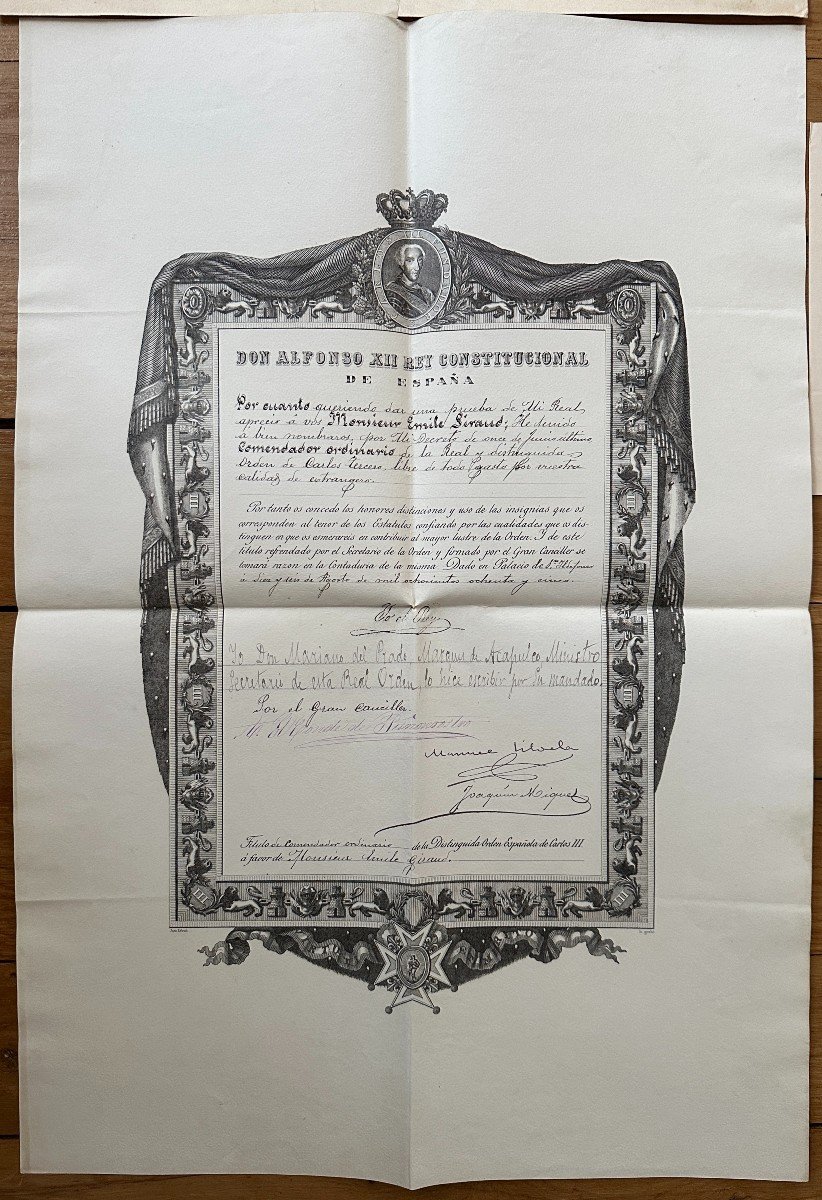 DON ALFONSO XII REY CONSTITUCIONAL
DE ESPAÑA
Por cuanto queriendo dar una prueba de Mi Real
aprecio á vos Monsieur Emile Giraud; He tenido
á bien nombraros, por Mi Decreto de once de Junio último
Comendador ordinario de la Real y distinguida
Orden de Carlos Tercero, libre de todo gasto por vuestra
calidad de extrangero.
Por tanto os concedo los honores distinciones y uso de las insignias que os
corresponden al tenor de los Estatutos confiando por las cualidades que os dis-
tinguen en que os esmerareis en contribuir al mayor lustre de la Orden. Y de este
título refrendado por el Secretario de la Orden y firmado por el Gran Canciller se
tomará razon en la Contaduria de la misma. Dado en Palacio de Sn. Ildefonso
á diez y seis de Agosto de mil ochocientos ochenta y cinco.
Yo el Rey
Yo Don Mariano del Prado Marques de Acapulco Ministro
Secretario de esta Real Orden, lo hice escribir por Su mandado.
Por el Gran Canciller.
El Conde de
Manuel Silvela
Joaquin Miquel
Título de Comendador ordinario de la Distinguida Orden Española de Carlos III
á favor de Monsieur Emile Giraud.
III
III
III
III
III
III